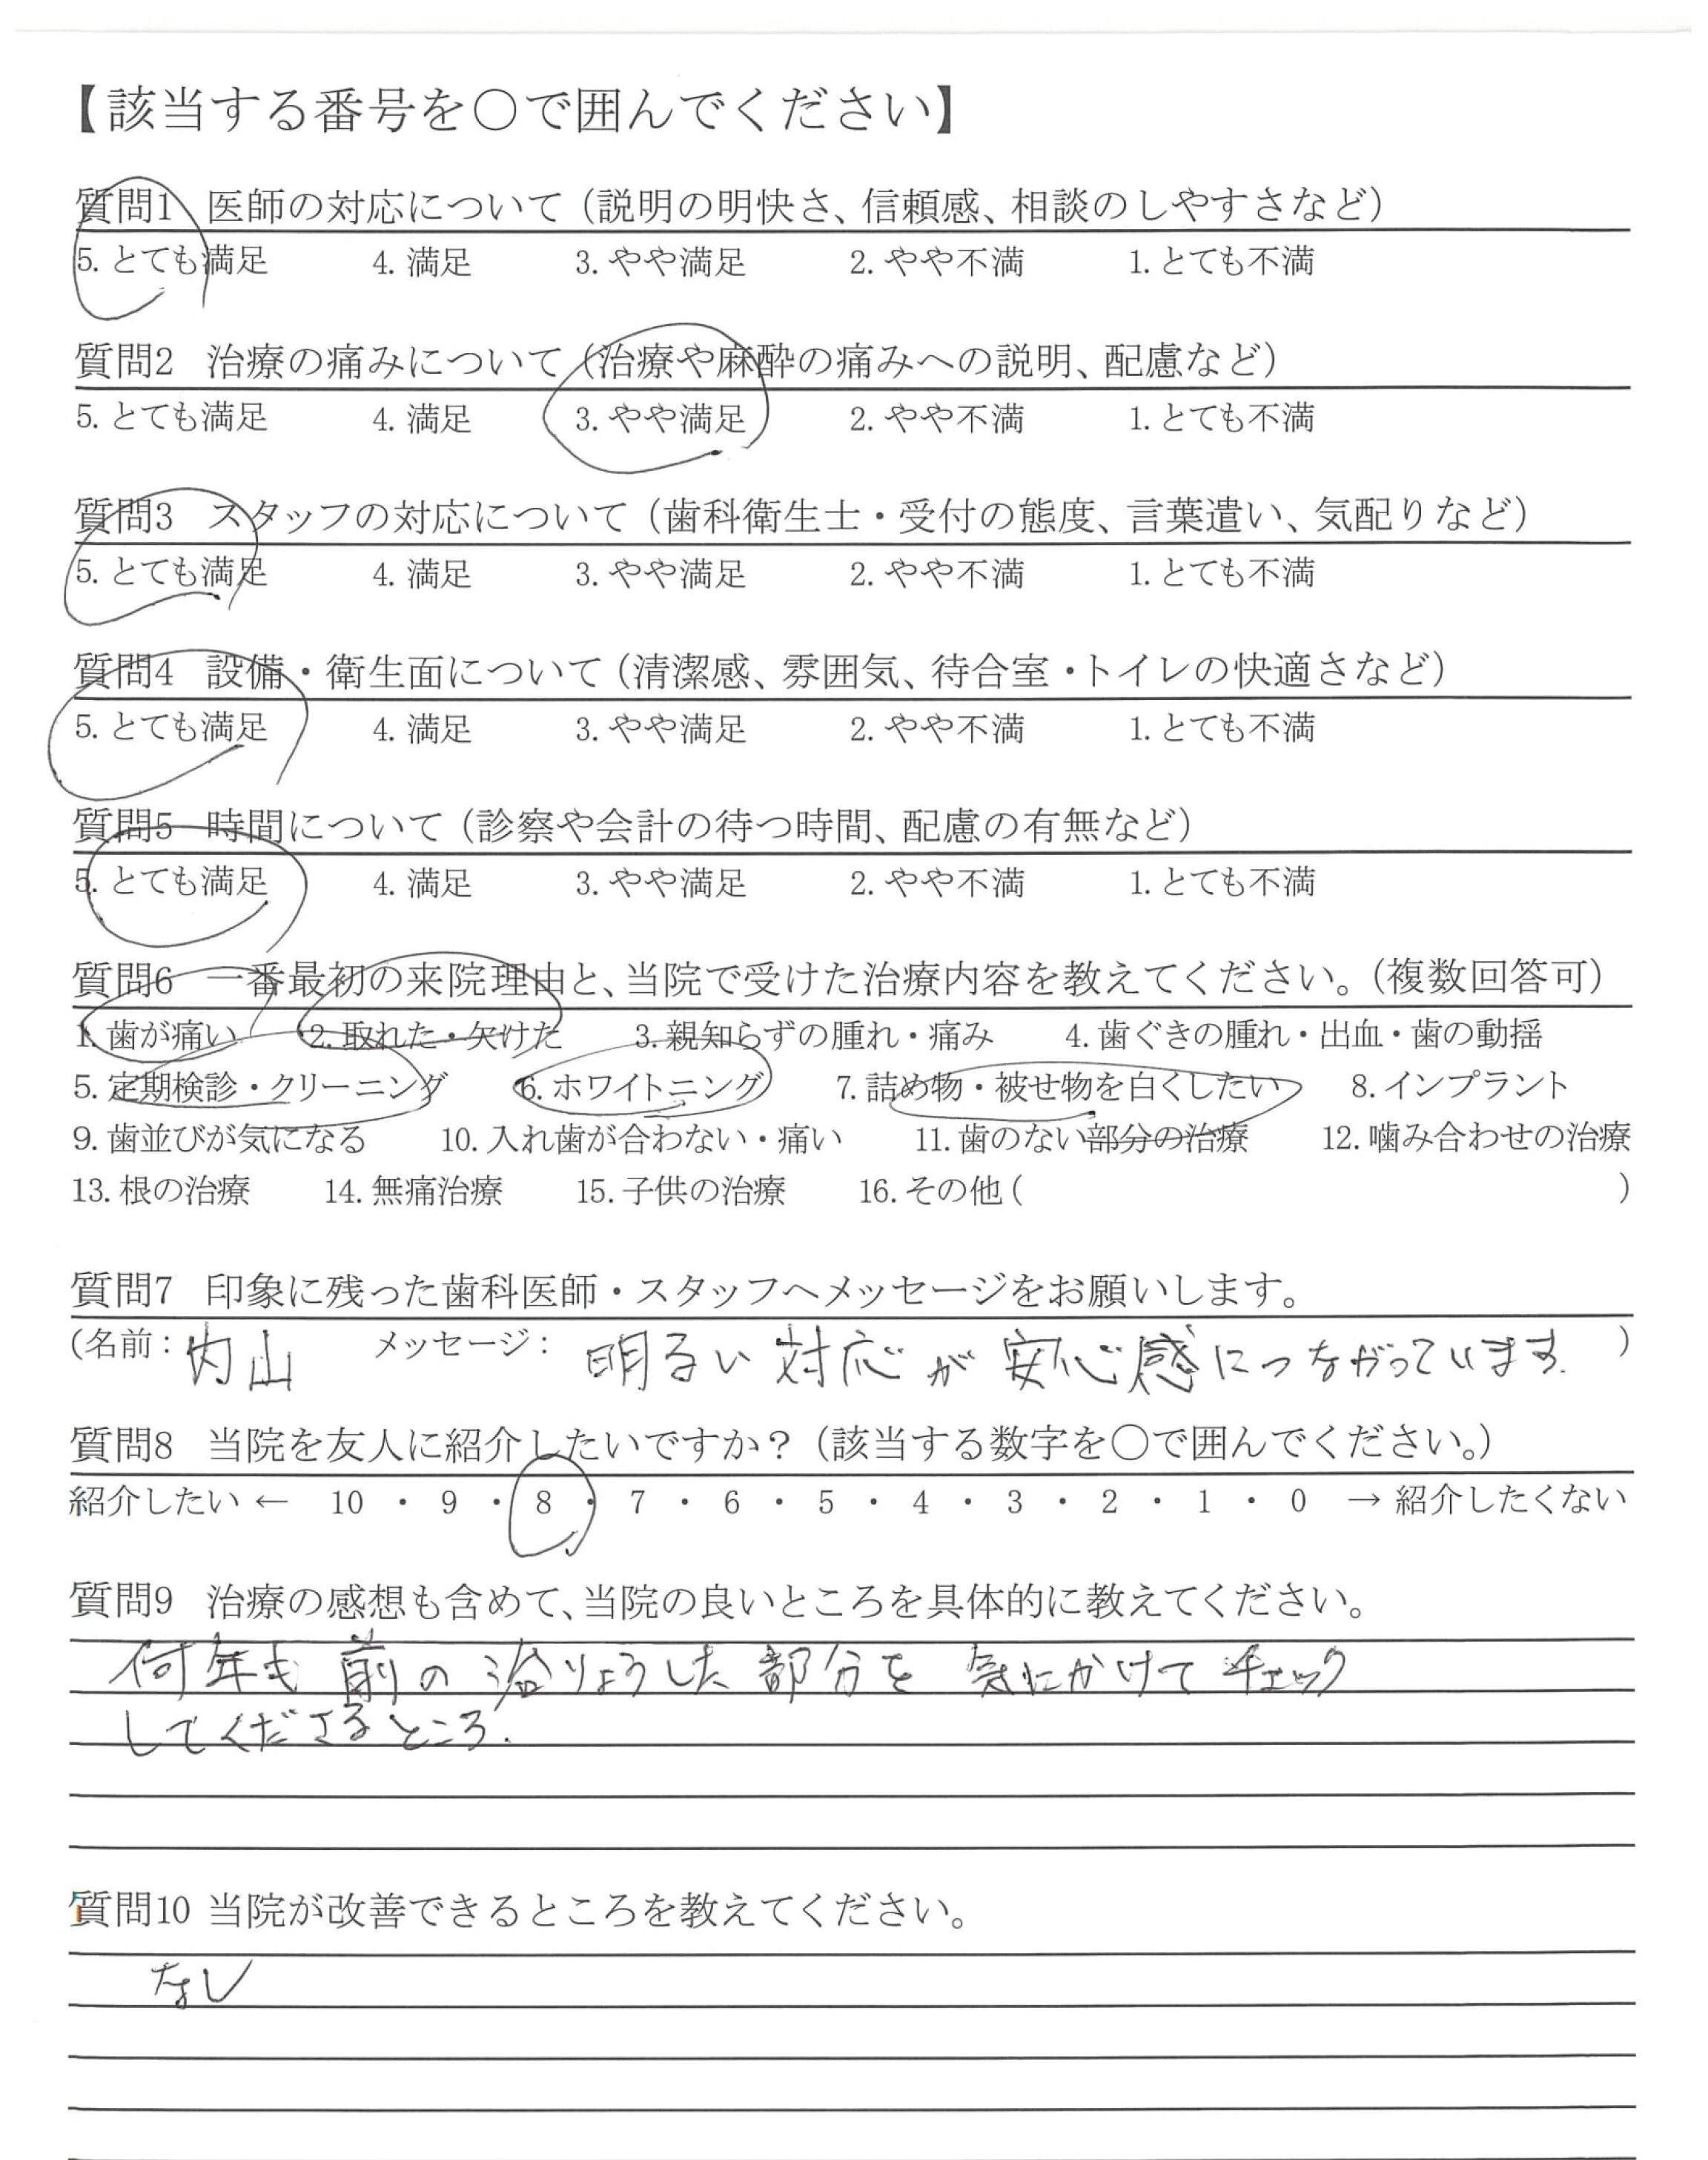 【該当する番号を○で囲んでください】
質問1 医師の対応について（説明の明快さ、信頼感、相談のしやすさなど）
5. とても満足 4. 満足 3. やや満足 2. やや不満 1. とても不満
質問2 治療の痛みについて（治療や麻酔の痛みへの説明、配慮など）
5. とても満足 4. 満足 3. やや満足 2. やや不満 1. とても不満
質問3 スタッフの対応について（歯科衛生士・受付の態度、言葉遣い、気配りなど）
5. とても満足 4. 満足 3. やや満足 2. やや不満 1. とても不満
質問4 設備・衛生面について（清潔感、雰囲気、待合室・トイレの快適さなど）
5. とても満足 4. 満足 3. やや満足 2. やや不満 1. とても不満
質問5 時間について（診察や会計の待つ時間、配慮の有無など）
5. とても満足 4. 満足 3. やや満足 2. やや不満 1. とても不満
質問6 一番最初の来院理由と、当院で受けた治療内容を教えてください。（複数回答可）
1. 歯が痛い 2. 取れた・欠けた 3. 親知らずの腫れ・痛み 4. 歯ぐきの腫れ・出血・歯の動揺
5. 定期検診・クリーニング 6. ホワイトニング 7. 詰め物・被せ物を白くしたい 8. インプラント
9. 歯並びが気になる 10. 入れ歯が合わない・痛い 11. 歯のない部分の治療 12. 噛み合わせの治療
13. 根の治療 14. 無痛治療 15. 子供の治療 16. その他（ ）
質問7 印象に残った歯科医師・スタッフへメッセージをお願いします。
（名前：内山 メッセージ： 明るい対応が安心感につながっています。）
質問8 当院を友人に紹介したいですか？（該当する数字を○で囲んでください。）
紹介したい ← 10 ・ 9 ・ 8 ・ 7 ・ 6 ・ 5 ・ 4 ・ 3 ・ 2 ・ 1 ・ 0 → 紹介したくない
質問9 治療の感想も含めて、当院の良いところを具体的に教えてください。
何年も前の治りょうした部分を気にかけてチェック
してくださるところ.
質問10 当院が改善できるところを教えてください。
なし